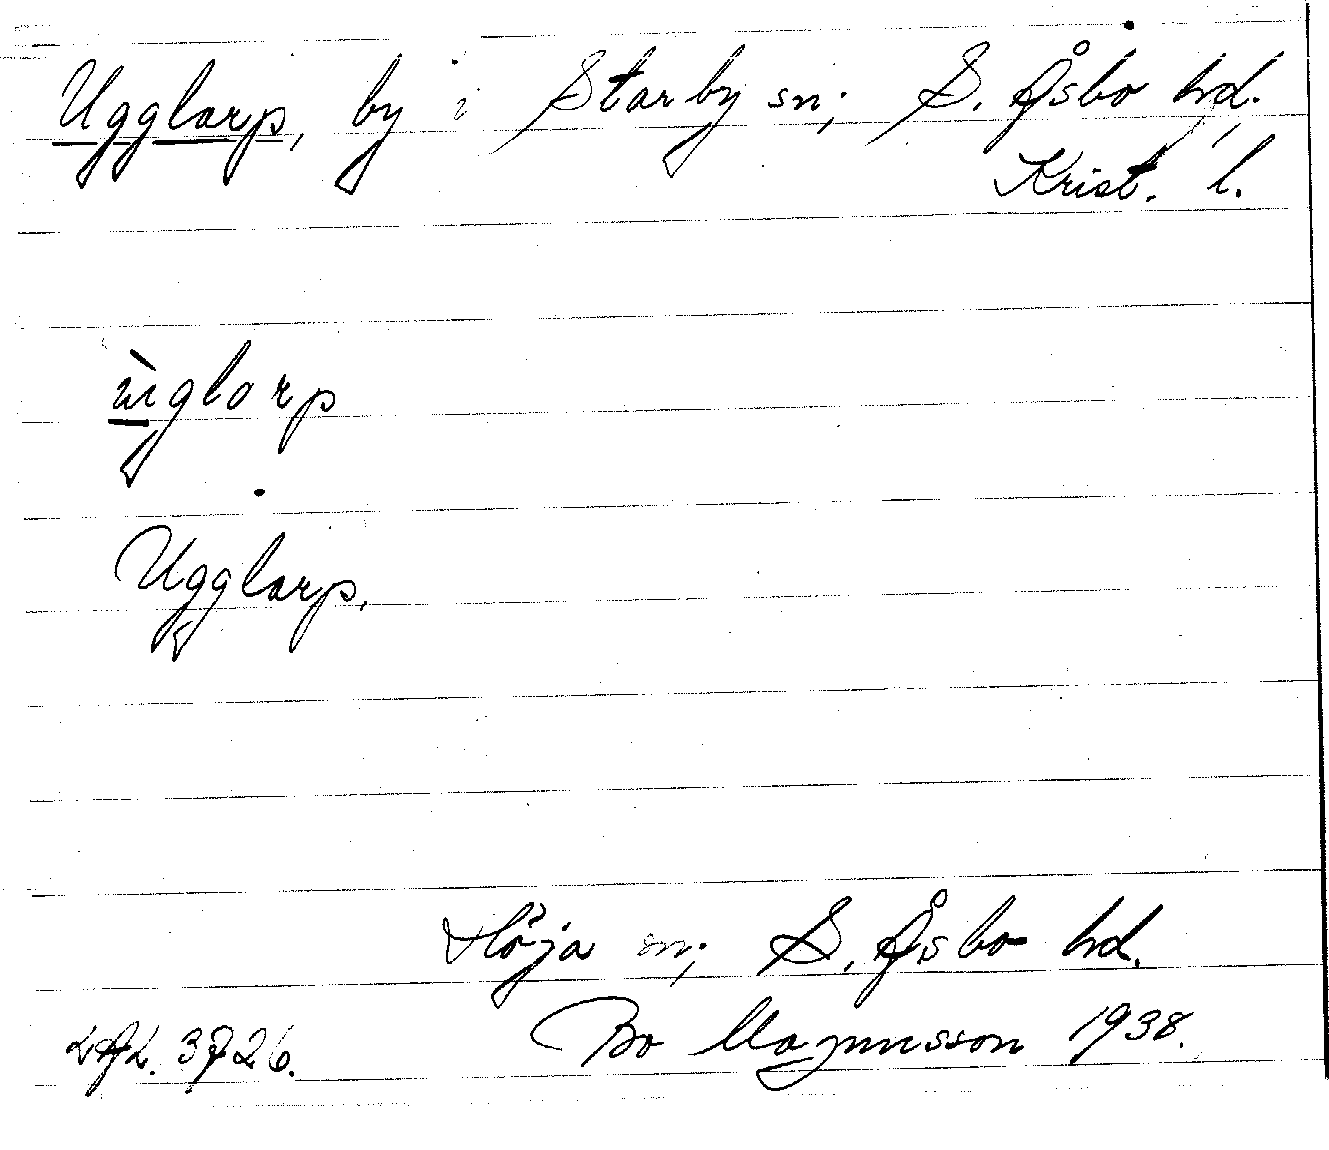 Ugglarp, by i Starby sn; S. Åsbo hd.
Krist. l.
ùglarp
Ugglarp.
Höja sn; S. Åsbo hd.
Bo Magnusson 1938.